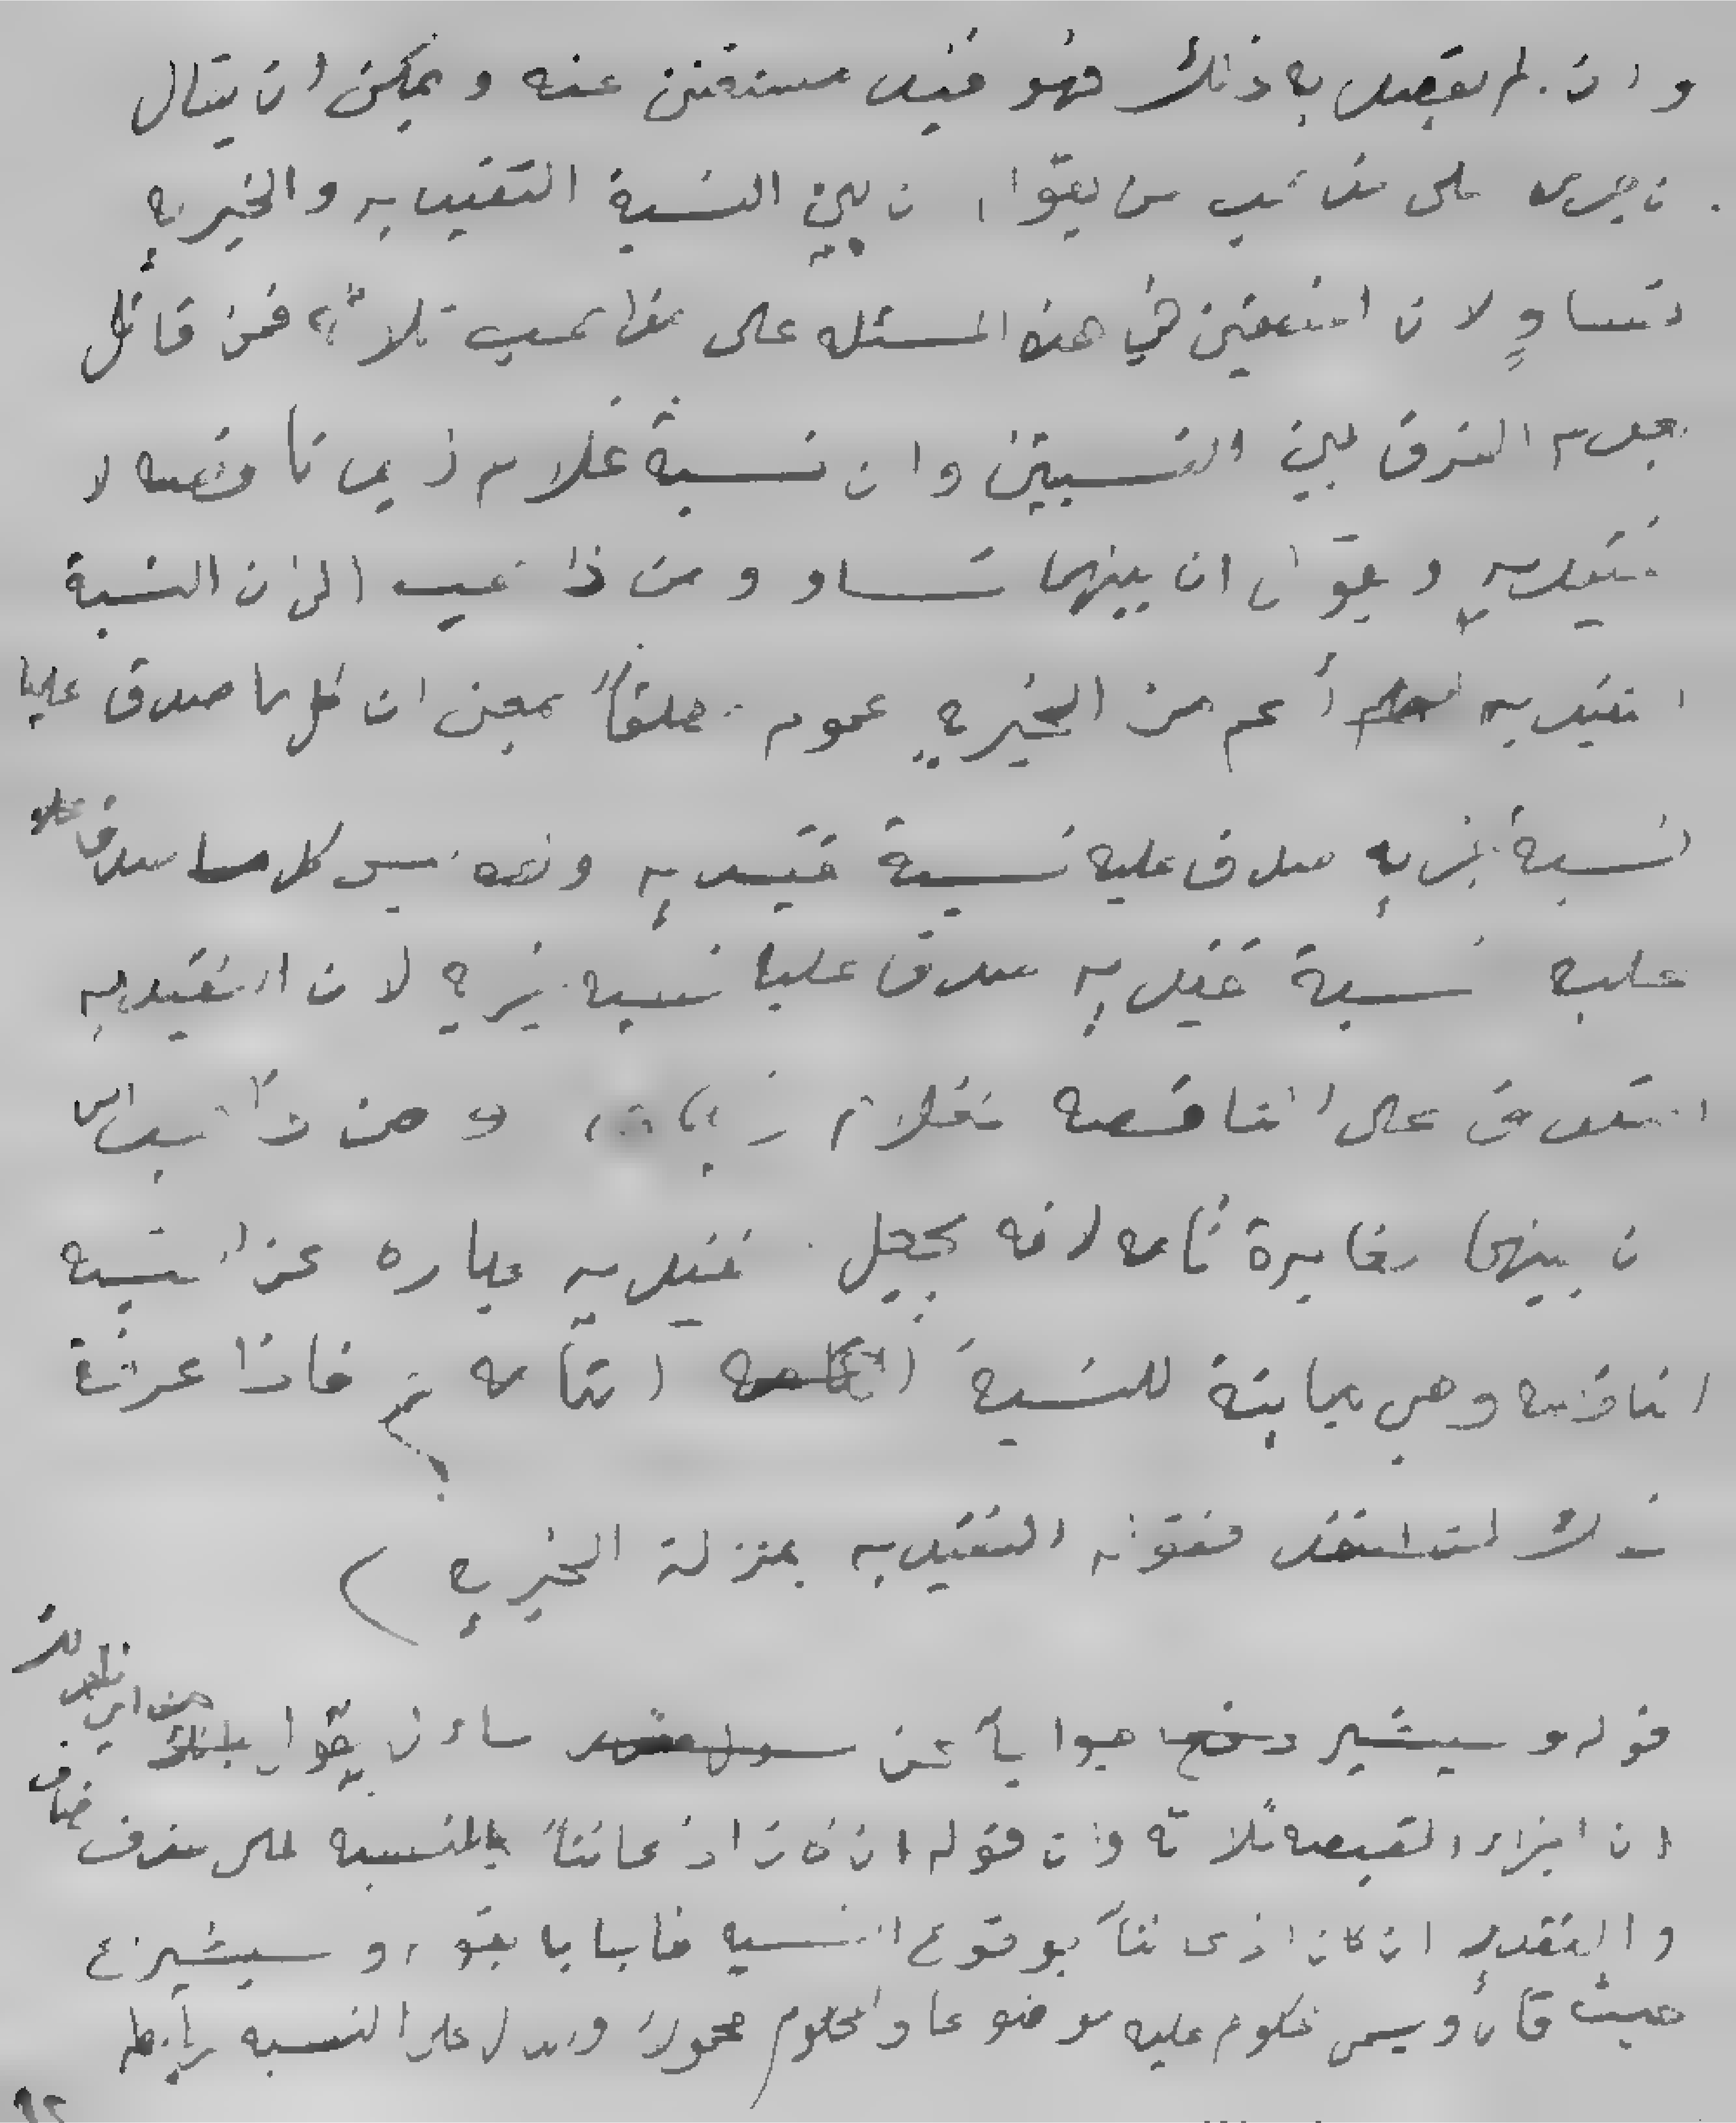 وان لم يقصد به ذلك فهو قيد مستغنى عنه ويمكن ان يقال
جرى على مذهب من يقول ان بين النسبة التقييديه والخبريه
تساوٍ لان المنطقيين في هذه المسئله على مذاهب ثلاثة فمن قائل
بعدم الفرق بين النسبتين وان نسبة غلام زيد ناقصه لا
تقييديه ويقول ان بينهما تساو ومن ذاهب الى ان النسبة
التقييديه أعم من الخبريه عموم مطلقاً بمعنى ان كل ما صدق عليها
نسبة خبريه صدق عليه نسبة تقييديه وليس كل ما صدق
عليه نسبة تقييديه صدق عليها نسبه خبريه لان التقييديه
تصدق على الناقصه كغلام زيد ومن ذاهب الى
ان بينهما مغايرة تامه لانه يجعل التقييديه عباره عن النسبه
الناقصه وهي مباينة للنسبة التامه فاذا عرفت
ذلك فقوله التقييديه بمنزلة الخبريه
قوله وسيشير جواباً عن سائل يقول
ان اجزاء القضيه ثلاثه وان قوله ان كان اذعاناً للنسبه على حذف مضاف
والتقدير ان كان اذعاناً بوقوع النسبه فاجاب بقوله وسيشير
حيث قال ويسمى المحكوم عليه موضوعا والمحكوم به محمولا والدال على النسبه رابطه
٩٢